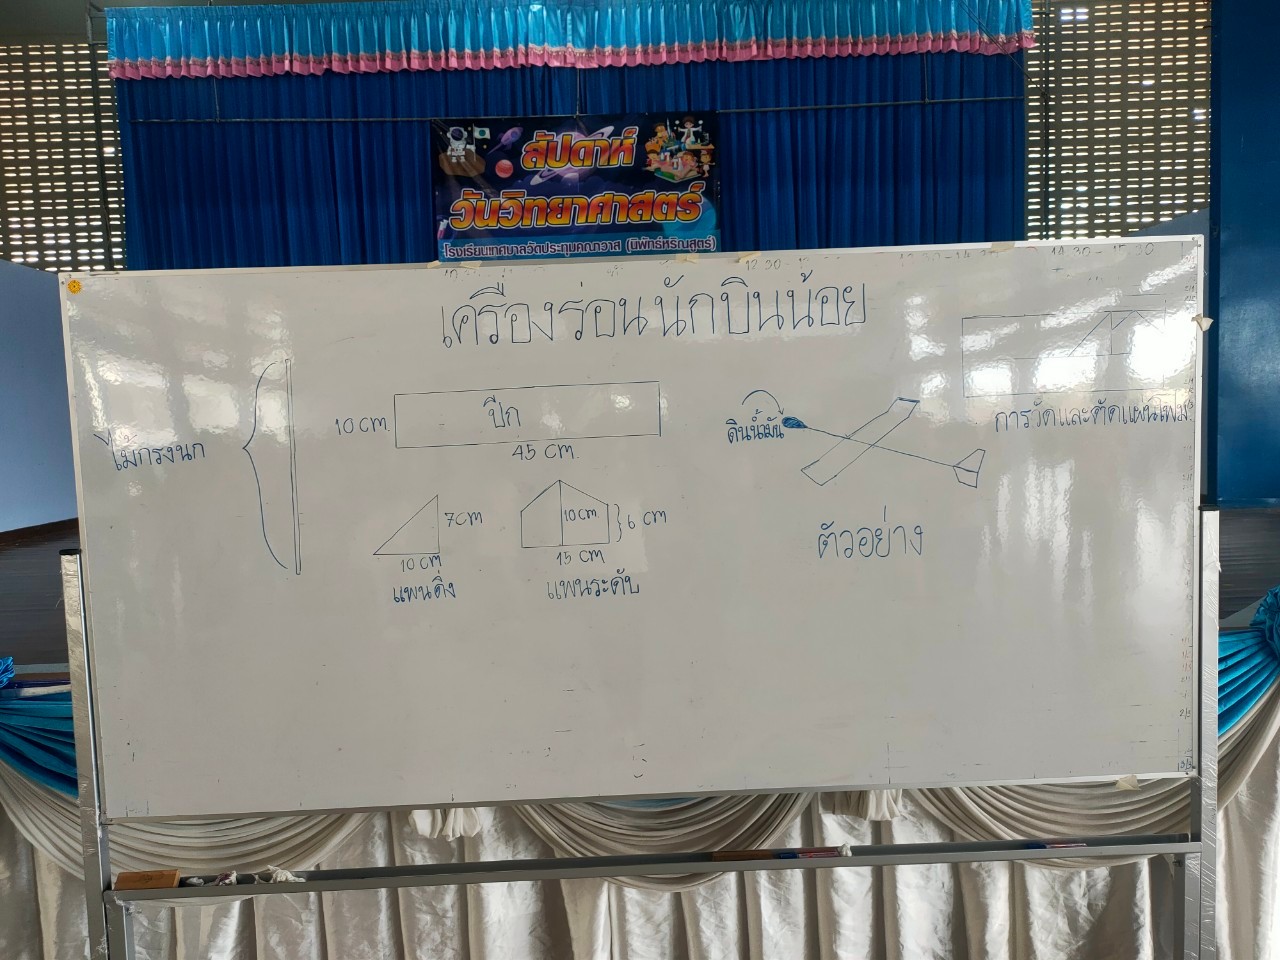 สัปดาห์
วันวิทยาศาสตร์
โรงเรียนเทศบาลวัดประทุมคณาวาส (นิพัทธ์หริณสูตร์)
14.30 - 15.30
เครื่องร่อนนักบินน้อย
ไม้กรงนก
10 cm
ปีก
45 cm
ดินน้ำมัน
การวัดและตัดแผ่นโฟม
7 cm
10 cm
แพนดิ่ง
10 cm
6 cm
15 cm
แพนระดับ
ตัวอย่าง